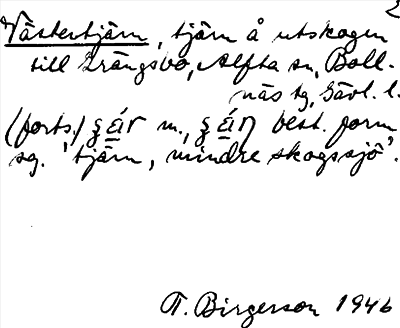 2
Västertjärn, tjärn å utskogen
till Trängsbo, Alfta sn, Boll-
näs tg, Gävl. l.
(forts.) ʂɛ́ɑr m., ʂɛ́ɑ̨ɳ best. form
sg. 'tjärn, mindre skogssjö'.
T. Birgerson 1946